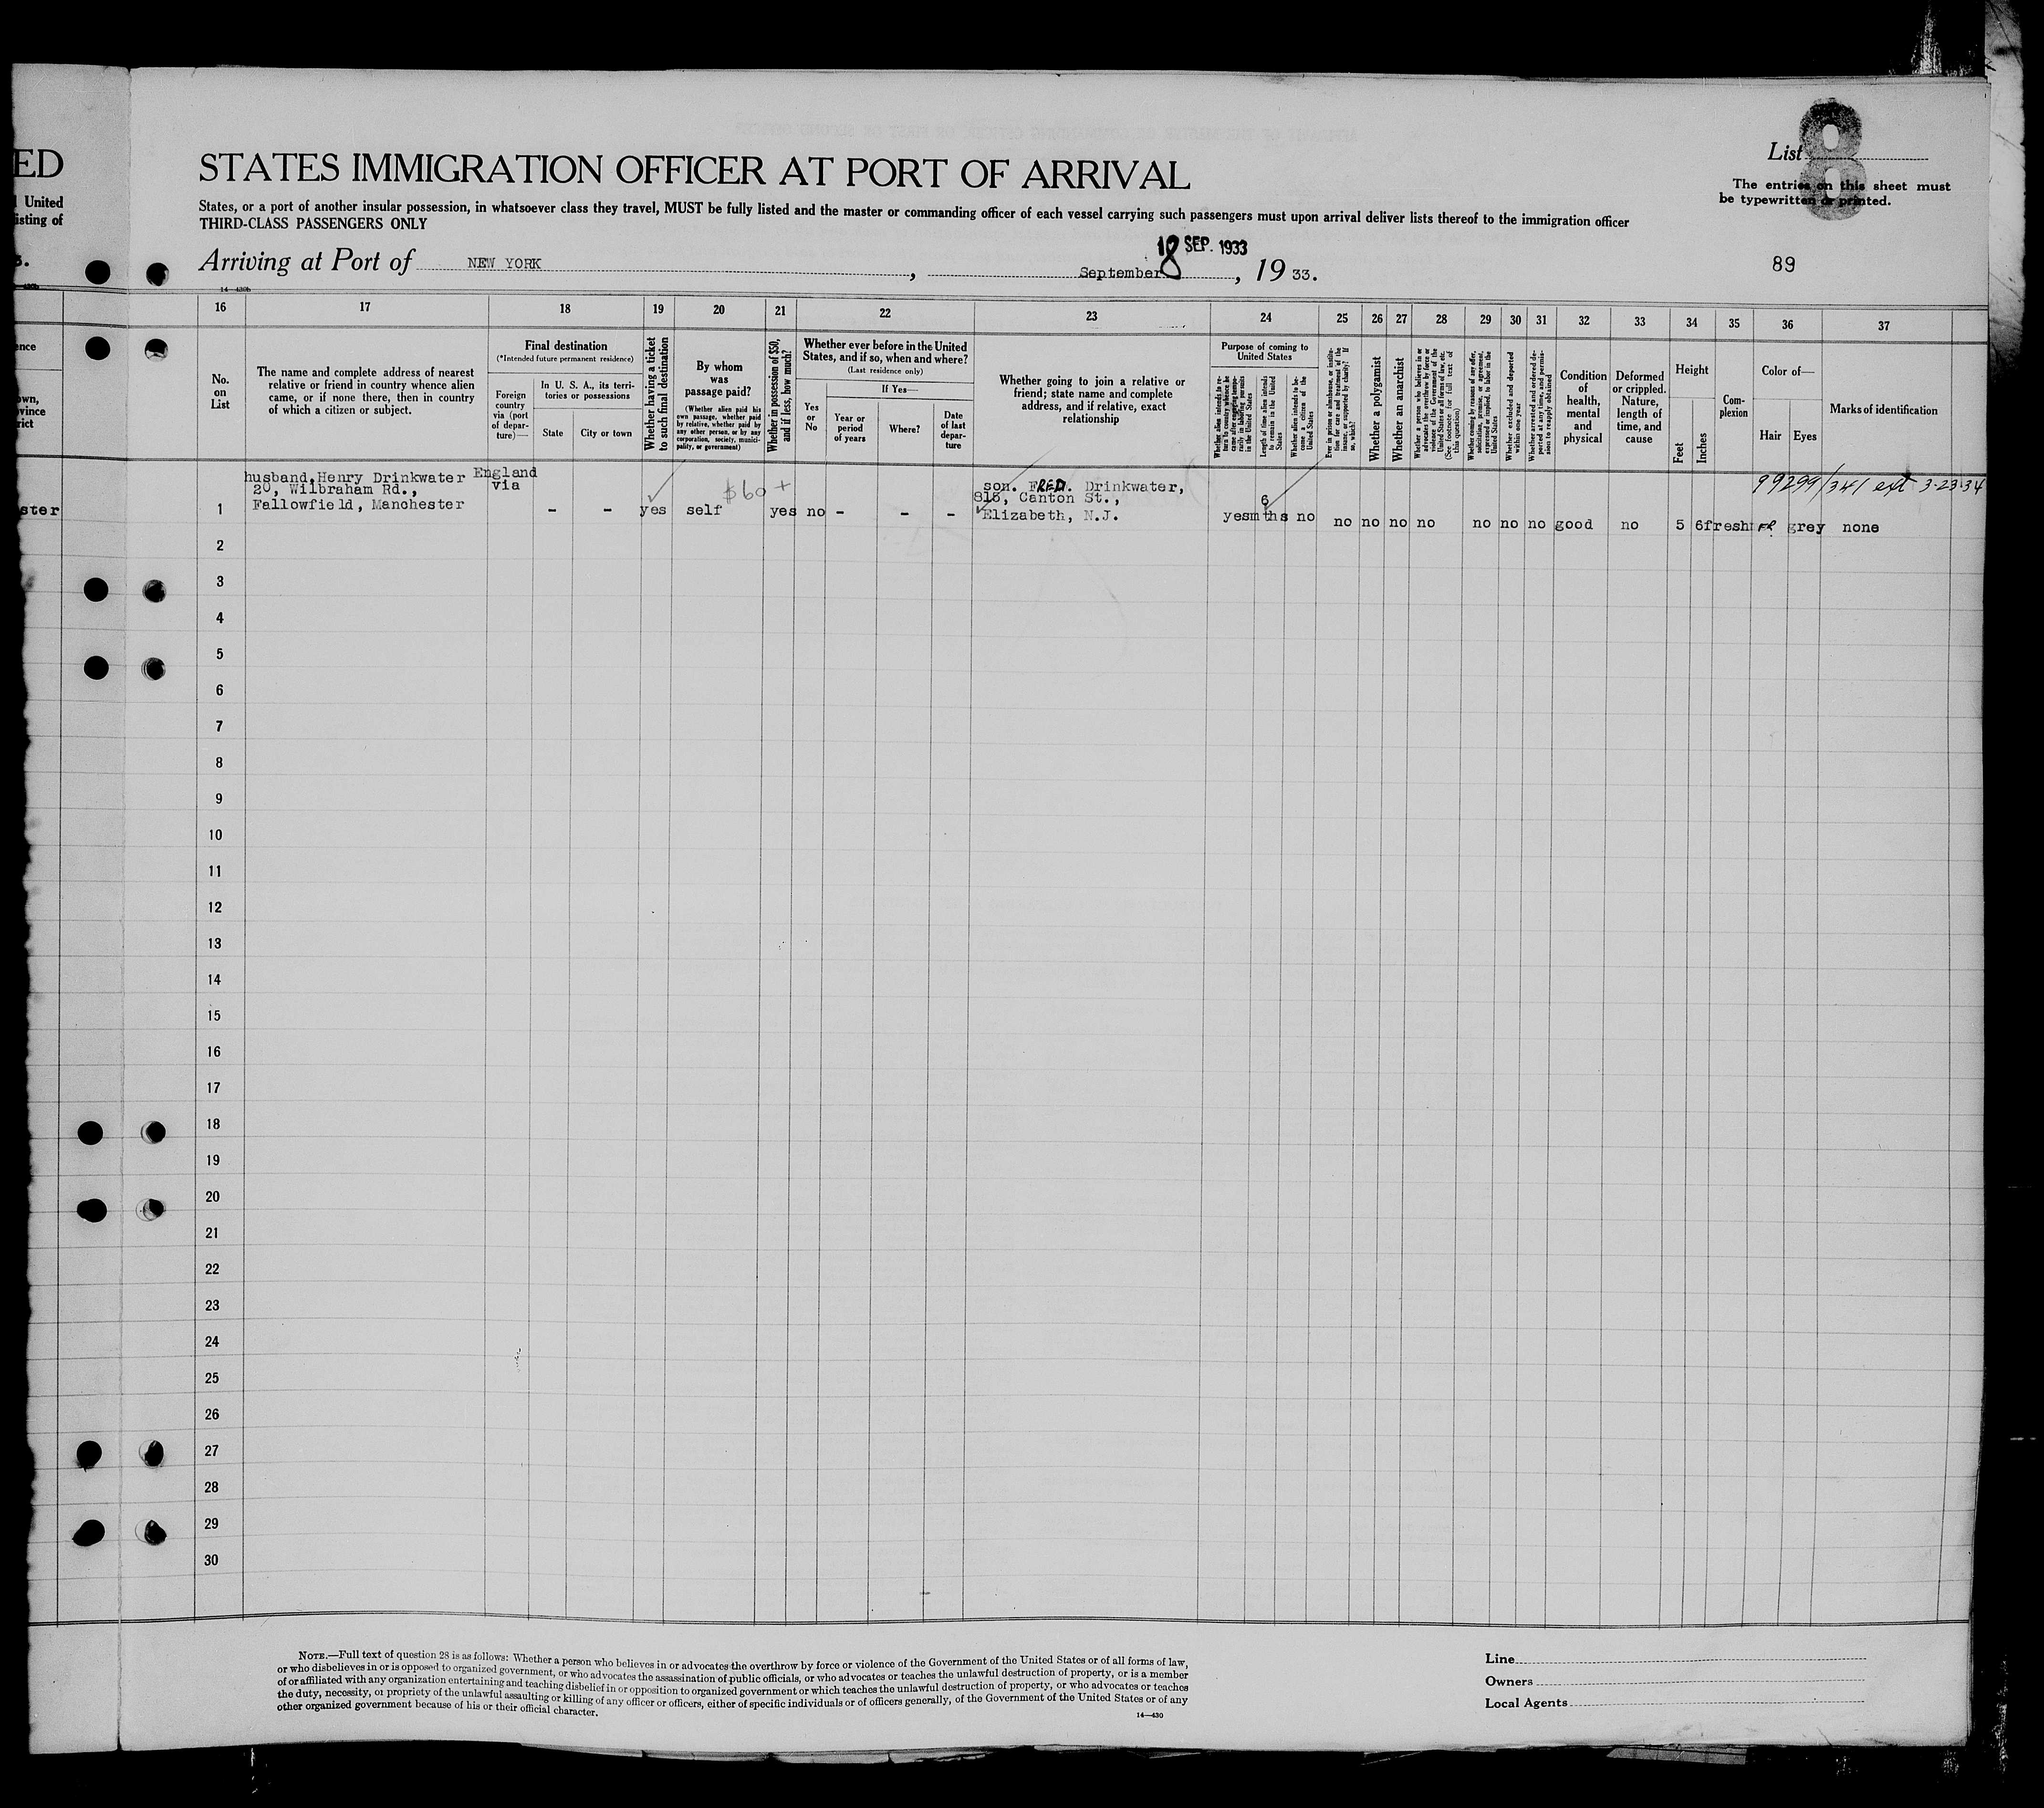 ED
STATES IMMIGRATION OFFICER AT PORT OF ARRIVAL
List
8
The entries on this sheet must
be typewritten or printed.
United
isting of
States, or a port of another insular possession, in whatsoever class they travel, MUST be fully listed and the master or commanding officer of each vessel carrying such passengers must upon arrival deliver lists thereof to the immigration officer
THIRD-CLASS PASSENGERS ONLY
Arriving at Port of NEW YORK, September 18, 19 33.
18 SEP. 1933
89
14-430b
16 17 18 19 20 21 22 23 24 25 26 27 28 29 30 31 32 33 34 35 36 37
No.
on
List
The name and complete address of nearest
relative or friend in country whence alien
came, or if none there, then in country
of which a citizen or subject.
Final destination
(*Intended future permanent residence)
Foreign
country
via (port
of depar-
ture)—
In U. S. A., its terri-
tories or possessions
State
City or town
Whether having a ticket
to such final destination
By whom
was
passage paid?
(Whether alien paid his
own passage, whether paid
by relative, whether paid by
any other person, or by any
corporation, society, munici-
pality, or government)
Whether in possession of $50,
and if less, how much?
Whether ever before in the United
States, and if so, when and where?
(Last residence only)
Yes
or
No
If Yes—
Year or
period
of years
Where?
Date
of last
depar-
ture
Whether going to join a relative or
friend; state name and complete
address, and if relative, exact
relationship
Purpose of coming to
United States
Whether alien intends to re-
turn to country whence he
came after engaging tempo-
rarily in laboring pursuits
in the United States
Length of time alien intends
to remain in the United
States
Whether alien intends to be-
come a citizen of the
United States
Ever in prison or almshouse, or institu-
tion for care and treatment of the
insane, or supported by charity? If
so, which?
Whether a polygamist
Whether an anarchist
Whether a person who believes in or
advocates the overthrow by force or
violence of the Government of the
United States or all forms of law, etc.
(See footnote for full text of
this question)
Whether coming by reason of any offer,
solicitation, promise, or agreement,
expressed or implied, to labor in the
United States
Whether excluded and deported
within one year
Whether arrested and ordered de-
ported at any time, and permis-
sion to reapply obtained
Condition
of
health,
mental
and
physical
Deformed
or crippled.
Nature,
length of
time, and
cause
Height
Feet
Inches
Com-
plexion
Color of—
Hair
Eyes
Marks of identification
99299/341 ext 3-23-34
husband, Henry Drinkwater
20, Wilbraham Rd.,
Fallowfield, Manchester
England
via
ster
1 - - yes self $60+ yes no - - -
son. FRED. Drinkwater,
815, Canton St.,
Elizabeth, N.J.
yes 6 mths no no no no no no no no good no 5 6 fresh grey none
2
3
4
5
6
7
8
9
10
11
12
13
14
15
16
17
18
19
20
21
22
23
24
25
26
27
28
29
30
NOTE.—Full text of question 28 is as follows: Whether a person who believes in or advocates the overthrow by force or violence of the Government of the United States or of all forms of law,
or who disbelieves in or is opposed to organized government, or who advocates the assassination of public officials, or who advocates or teaches the unlawful destruction of property, or is a member
of or affiliated with any organization entertaining and teaching disbelief in or opposition to organized government or which teaches the unlawful destruction of property, or who advocates or teaches
the duty, necessity, or propriety of the unlawful assaulting or killing of any officer or officers, either of specific individuals or of officers generally, of the Government of the United States or of any
other organized government because of his or their official character.
14—430
Line
Owners
Local Agents